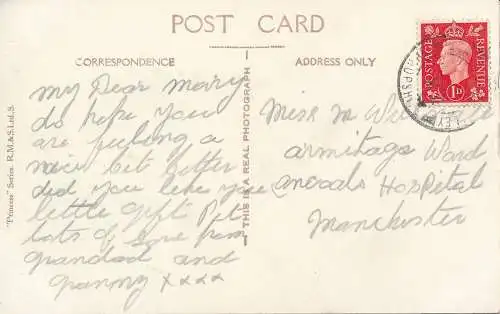 POST CARD
CORRESPONDENCE
ADDRESS ONLY
My Dear Mary
do hope you
are feeling a
nice bit better
did you like you
little gift Pet
lots of love from
grandad and
granny xxxx
THIS IS A REAL PHOTOGRAPH
"Princess" Series. R.M.& S.Ltd. S.
Miss M
Armitage Ward
Ancoats Hospital
Manchester
POSTAGE
REVENUE
1D